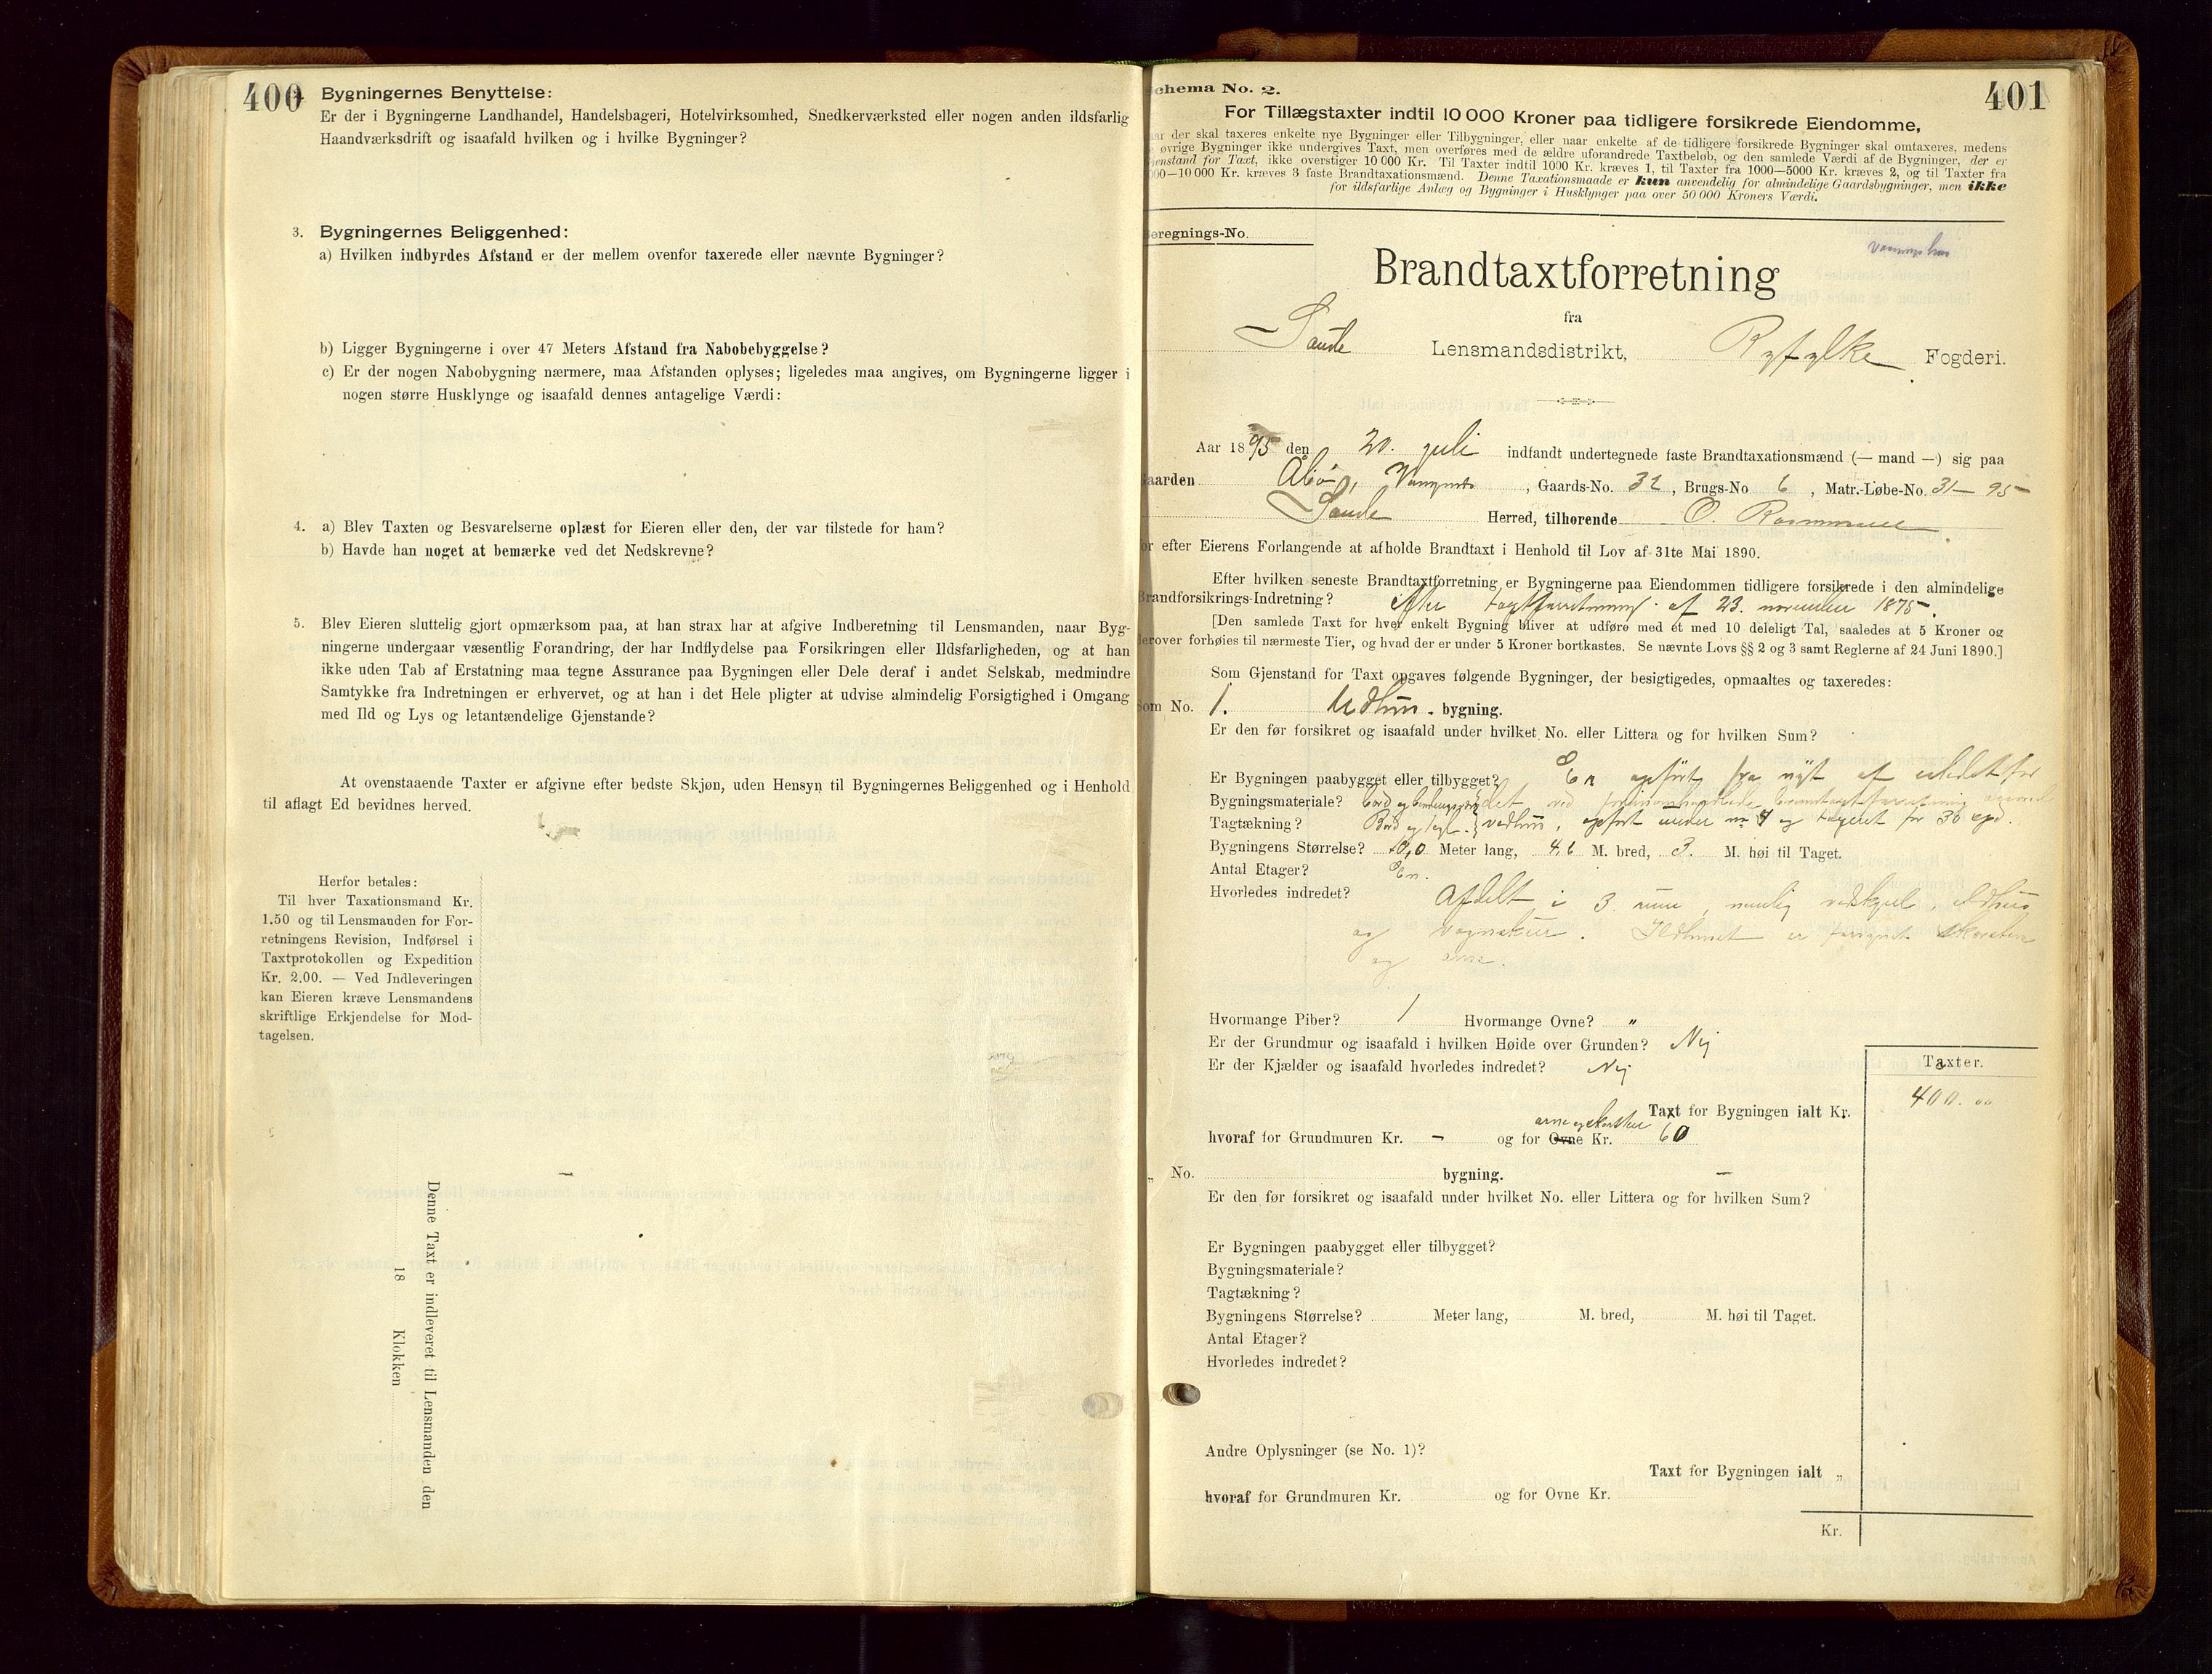 400
Bygningernes Benyttelse:
Er der i Bygningerne Landhandel, Handelsbageri, Hotelvirksomhed, Snedkerværksted eller nogen anden ildsfarlig
Haandværksdrift og isaafald hvilken og i hvilke Bygninger?
3. Bygningernes Beliggenhed:
a) Hvilken indbyrdes Afstand er der mellem ovenfor taxerede eller nævnte Bygninger?
b) Ligger Bygningerne i over 47 Meters Afstand fra Nabobebyggelse?
c) Er der nogen Nabobygning nærmere, maa Afstanden oplyses; ligeledes maa angives, om Bygningerne ligger i
nogen større Husklynge og isaafald dennes antagelige Værdi:
4. a) Blev Taxten og Besvarelserne oplæst for Eieren eller den, der var tilstede for ham?
b) Havde han noget at bemærke ved det Nedskrevne?
5. Blev Eieren sluttelig gjort opmærksom paa, at han strax har at afgive Indberetning til Lensmanden, naar Byg-
ningerne undergaar væsentlig Forandring, der har Indflydelse paa Forsikringen eller Ildsfarligheden, og at han
ikke uden Tab af Erstatning maa tegne Assurance paa Bygningen eller Dele deraf i andet Selskab, medmindre
Samtykke fra Indretningen er erhvervet, og at han i det Hele pligter at udvise almindelig Forsigtighed i Omgang
med Ild og Lys og letantændelige Gjenstande?
At ovenstaaende Taxter er afgivne efter bedste Skjøn, uden Hensyn til Bygningernes Beliggenhed og i Henhold
til aflagt Ed bevidnes herved.
Herfor betales:
Til hver Taxationsmand Kr.
1.50 og til Lensmanden for For-
retningens Revision, Indførsel i
Taxtprotokollen og Expedition
Kr. 2.00. — Ved Indleveringen
kan Eieren kræve Lensmandens
skriftlige Erkjendelse for Mod-
tagelsen.
Denne Taxt er indleveret til Lensmanden den
18 Klokken
401
Schema No. 2.
For Tillægstaxter indtil 10 000 Kroner paa tidligere forsikrede Eiendomme,
aar der skal taxeres enkelte nye Bygninger eller Tilbygninger, eller naar enkelte af de tidligere forsikrede Bygninger skal omtaxeres, medens
øvrige Bygninger ikke undergives Taxt, men overføres med de ældre uforandrede Taxtbeløb, og den samlede Værdi af de Bygninger, der er
jenstand for Taxt, ikke overstiger 10 000 Kr. Til Taxter indtil 1000 Kr. kræves 1, til Taxter fra 1000—5000 Kr. kræves 2, og til Taxter fra
000—10 000 Kr. kræves 3 faste Brandtaxationsmænd. Denne Taxationsmaade er kun anvendelig for almindelige Gaardsbygninger, men ikke
for ildsfarlige Anlæg og Bygninger i Husklynger paa over 50 000 Kroners Værdi.
Beregnings-No.
Brandtaxtforretning
fra
Saude Lensmandsdistrikt, Ryfylke Fogderi.
Aar 1895 den 20. juli indfandt undertegnede faste Brandtaxationsmænd (— mand —) sig paa
Gaarden Abø, , Gaards-No. 32, Brugs-No 6, Matr.-Løbe-No. 31—95
Saude Herred, tilhørende O. Rasmussen
for efter Eierens Forlangende at afholde Brandtaxt i Henhold til Lov af 31te Mai 1890.
Efter hvilken seneste Brandtaxtforretning er Bygningerne paa Eiendommen tidligere forsikrede i den almindelige
Brandforsikrings-Indretning? Efter taxtforretning af 23. november 1875.
[Den samlede Taxt for hver enkelt Bygning bliver at udføre med et med 10 deleligt Tal, saaledes at 5 Kroner og
derover forhøies til nærmeste Tier, og hvad der er under 5 Kroner bortkastes. Se nævnte Lovs §§ 2 og 3 samt Reglerne af 24 Juni 1890.]
Som Gjenstand for Taxt opgaves følgende Bygninger, der besigtigedes, opmaaltes og taxeredes:
Som No. 1. Udhus- bygning.
Er den før forsikret og isaafald under hvilket No. eller Littera og for hvilken Sum?
Er Bygningen paabygget eller tilbygget? Er opført fra nyt af istedetfor
Bygningsmateriale? Bord og bindingsværk det ved
Tagtækning? Bord og tegl. vedhus, opført under no 4 og taxeret for 30 spd.
Bygningens Størrelse? 10,0 Meter lang, 4,6 M. bred, 3. M. høi til Taget.
Antal Etager? En.
Hvorledes indredet? Afdelt i 3 rum, nemlig vedskjul, ildhus
og vognskur. Ildhuset er forsynet skorsten
og arne.
Hvormange Piber? 1 Hvormange Ovne? "
Er der Grundmur og isaafald i hvilken Høide over Grunden? Nej
Er der Kjælder og isaafald hvorledes indredet? Nej
Taxter.
Taxt for Bygningen ialt Kr. 400. 00
arne og skorsten
hvoraf for Grundmuren Kr. - og for Ovne Kr. 60
„ No. bygning. —
Er den før forsikret og isaafald under hvilket No. eller Littera og for hvilken Sum?
Er Bygningen paabygget eller tilbygget?
Bygningsmateriale?
Tagtækning?
Bygningens Størrelse? Meter lang, M. bred, M. høi til Taget.
Antal Etager?
Hvorledes indredet?
Andre Oplysninger (se No. 1)?
Taxt for Bygningen ialt „
hvoraf for Grundmuren Kr. og for Ovne Kr.
Kr.